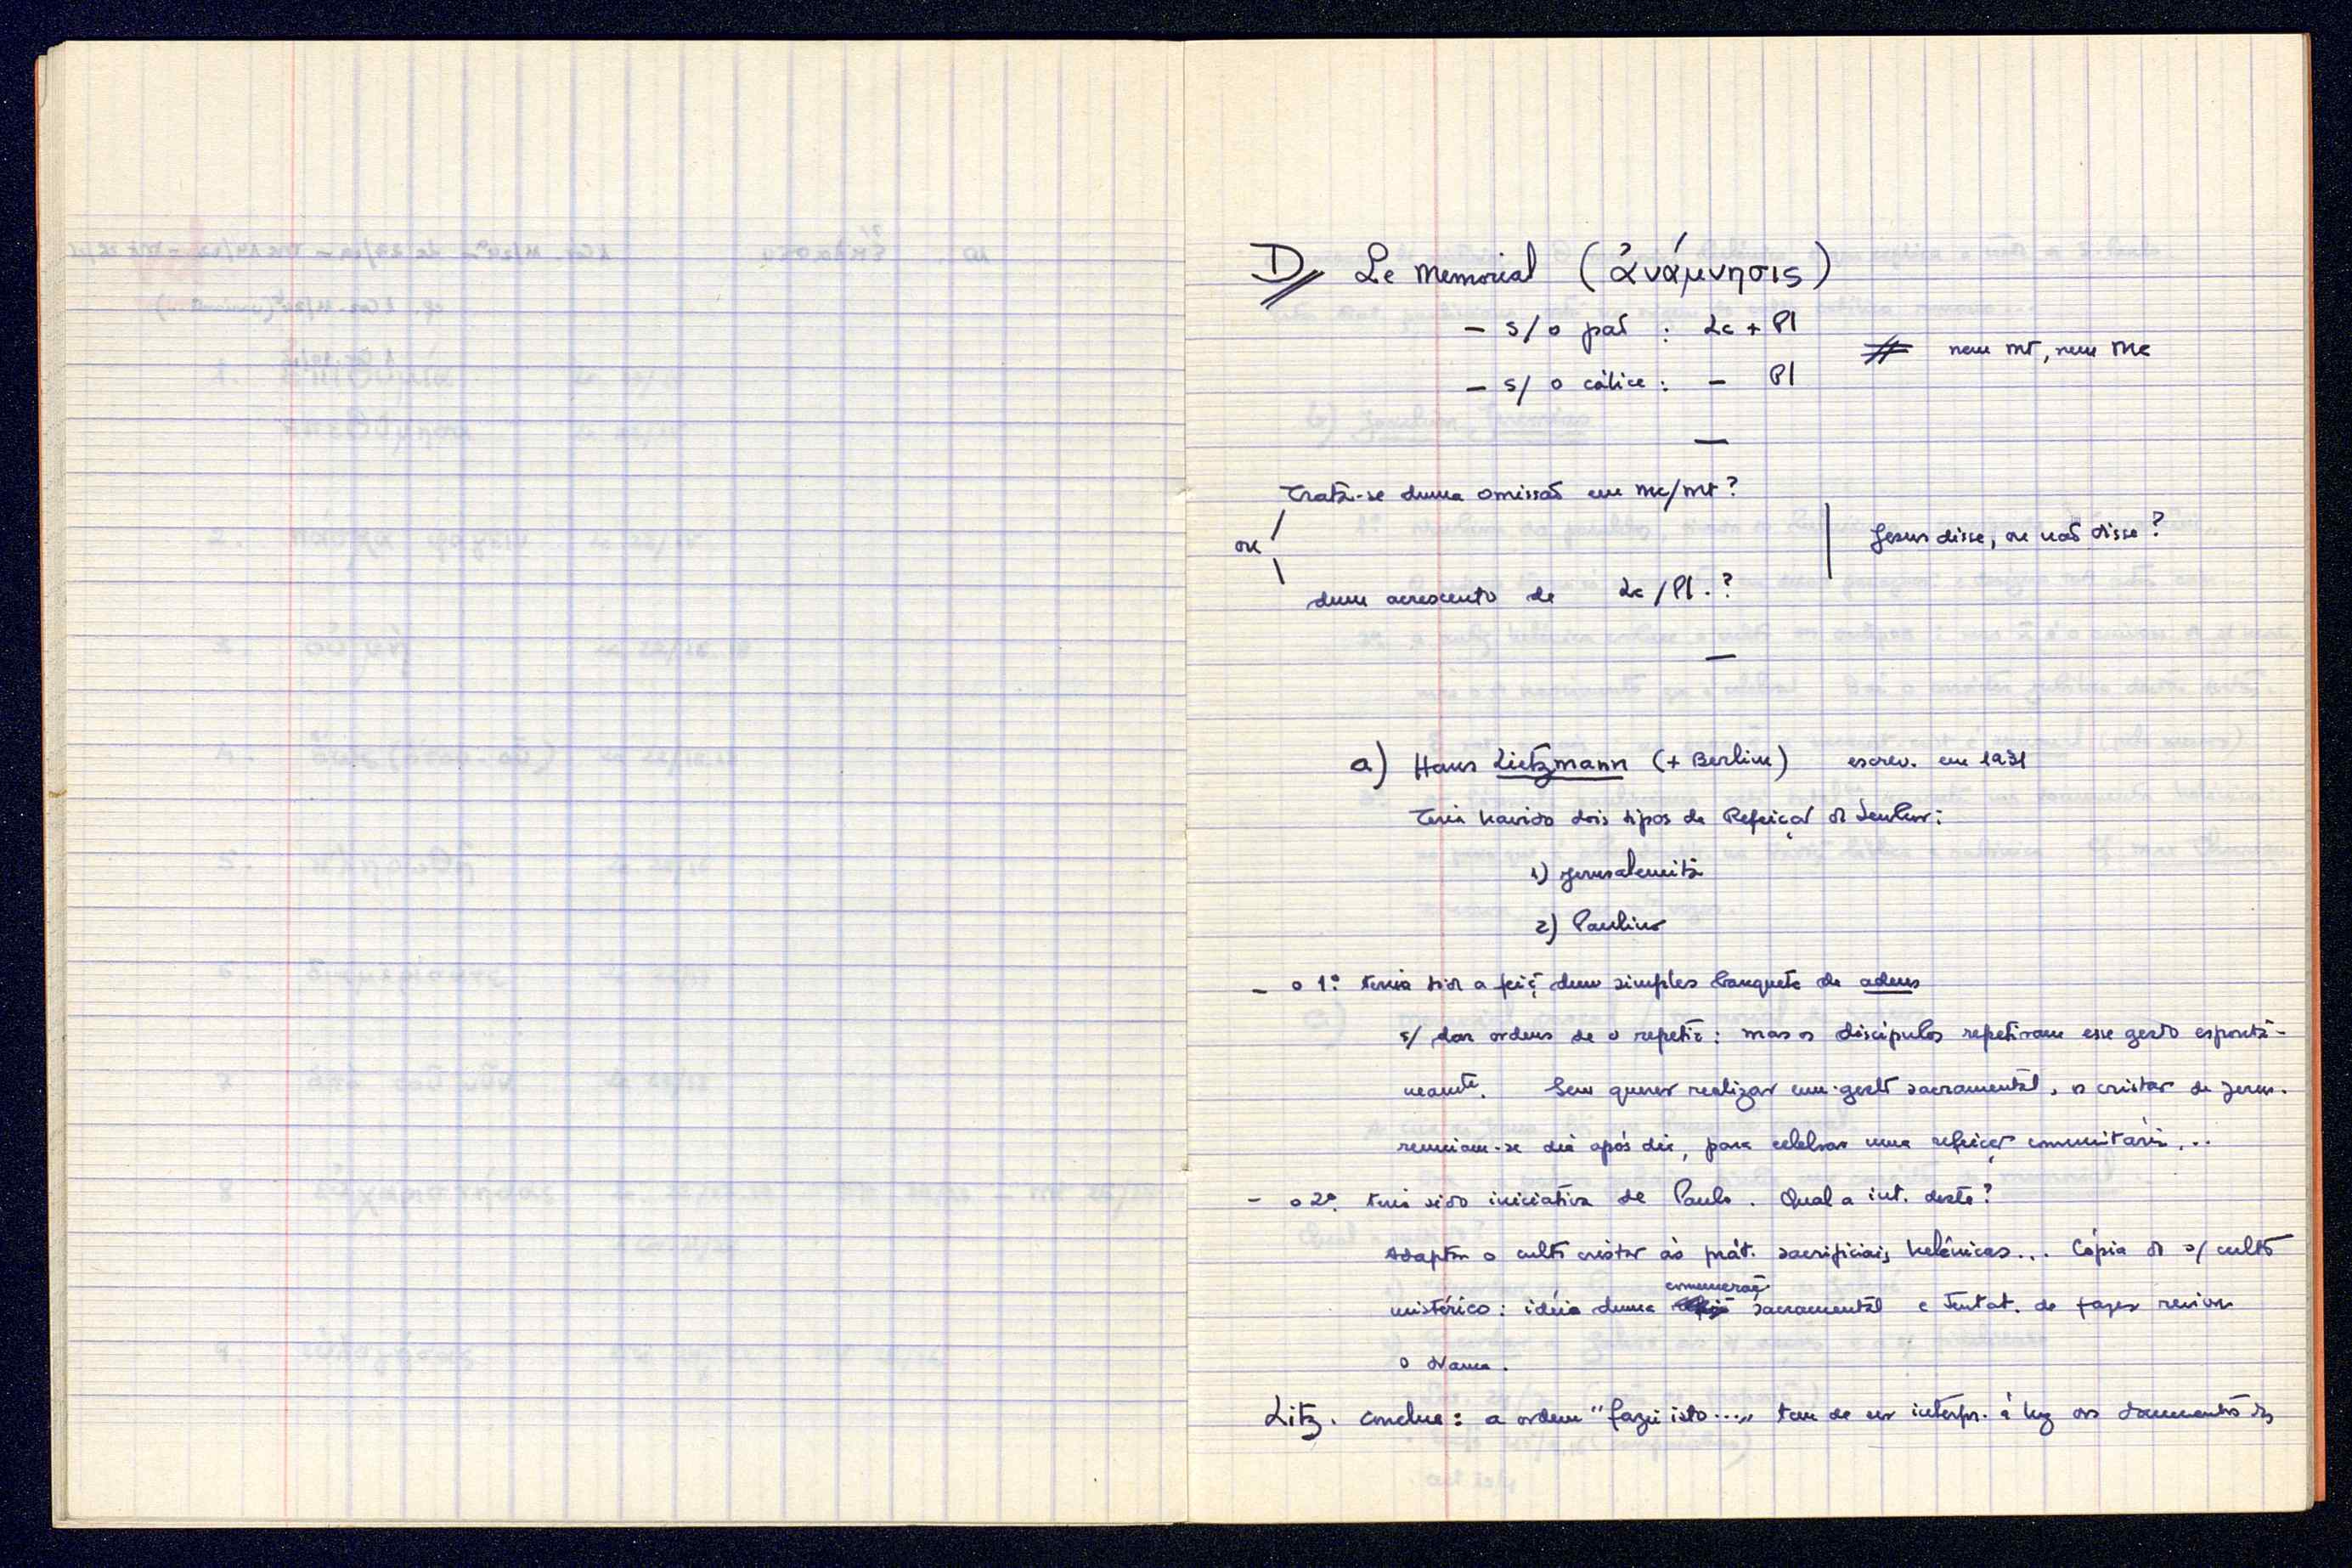 D// Le Memorial (ἀνάμνησις)
– s/ o pão : Lc + Pl
– s/ o cálice : – Pl
# nem Mt, nem Mc
—
Trata-se duma omissão em Mc/Mt?
ou
dum acrescento de Lc/Pl.?
Jesus disse, ou não disse?
—
a) Hans Lietzmann (+ Berlim) escrev. em 1931
Teria havido dois tipos de Refeição do Senhor:
1) Jerusalemita
2) Paulino
– o 1º teria sido a feiç. dum simples banquete de adeus
s/ dar ordens de o repetir: mas os discípulos repetiram esse gesto espontâ-
neamte. Sem querer realizar um gesto sacramental, os cristãos de Jerus.
reuniam-se dia após dia, para celebrar uma refeição comunitária...
– o 2º teria sido iniciativa de Paulo. Qual a int. deste?
Adaptar o culto cristão às prát. sacrificiais helénicas... Cópia do s/ culto
mistérico: idéia duma comemoraç. sacramental e tentat. de fazer reviver
o drama.
Litz. conclue: a ordem "fazei isto..." tem de ser interpr. à luz dos documentos